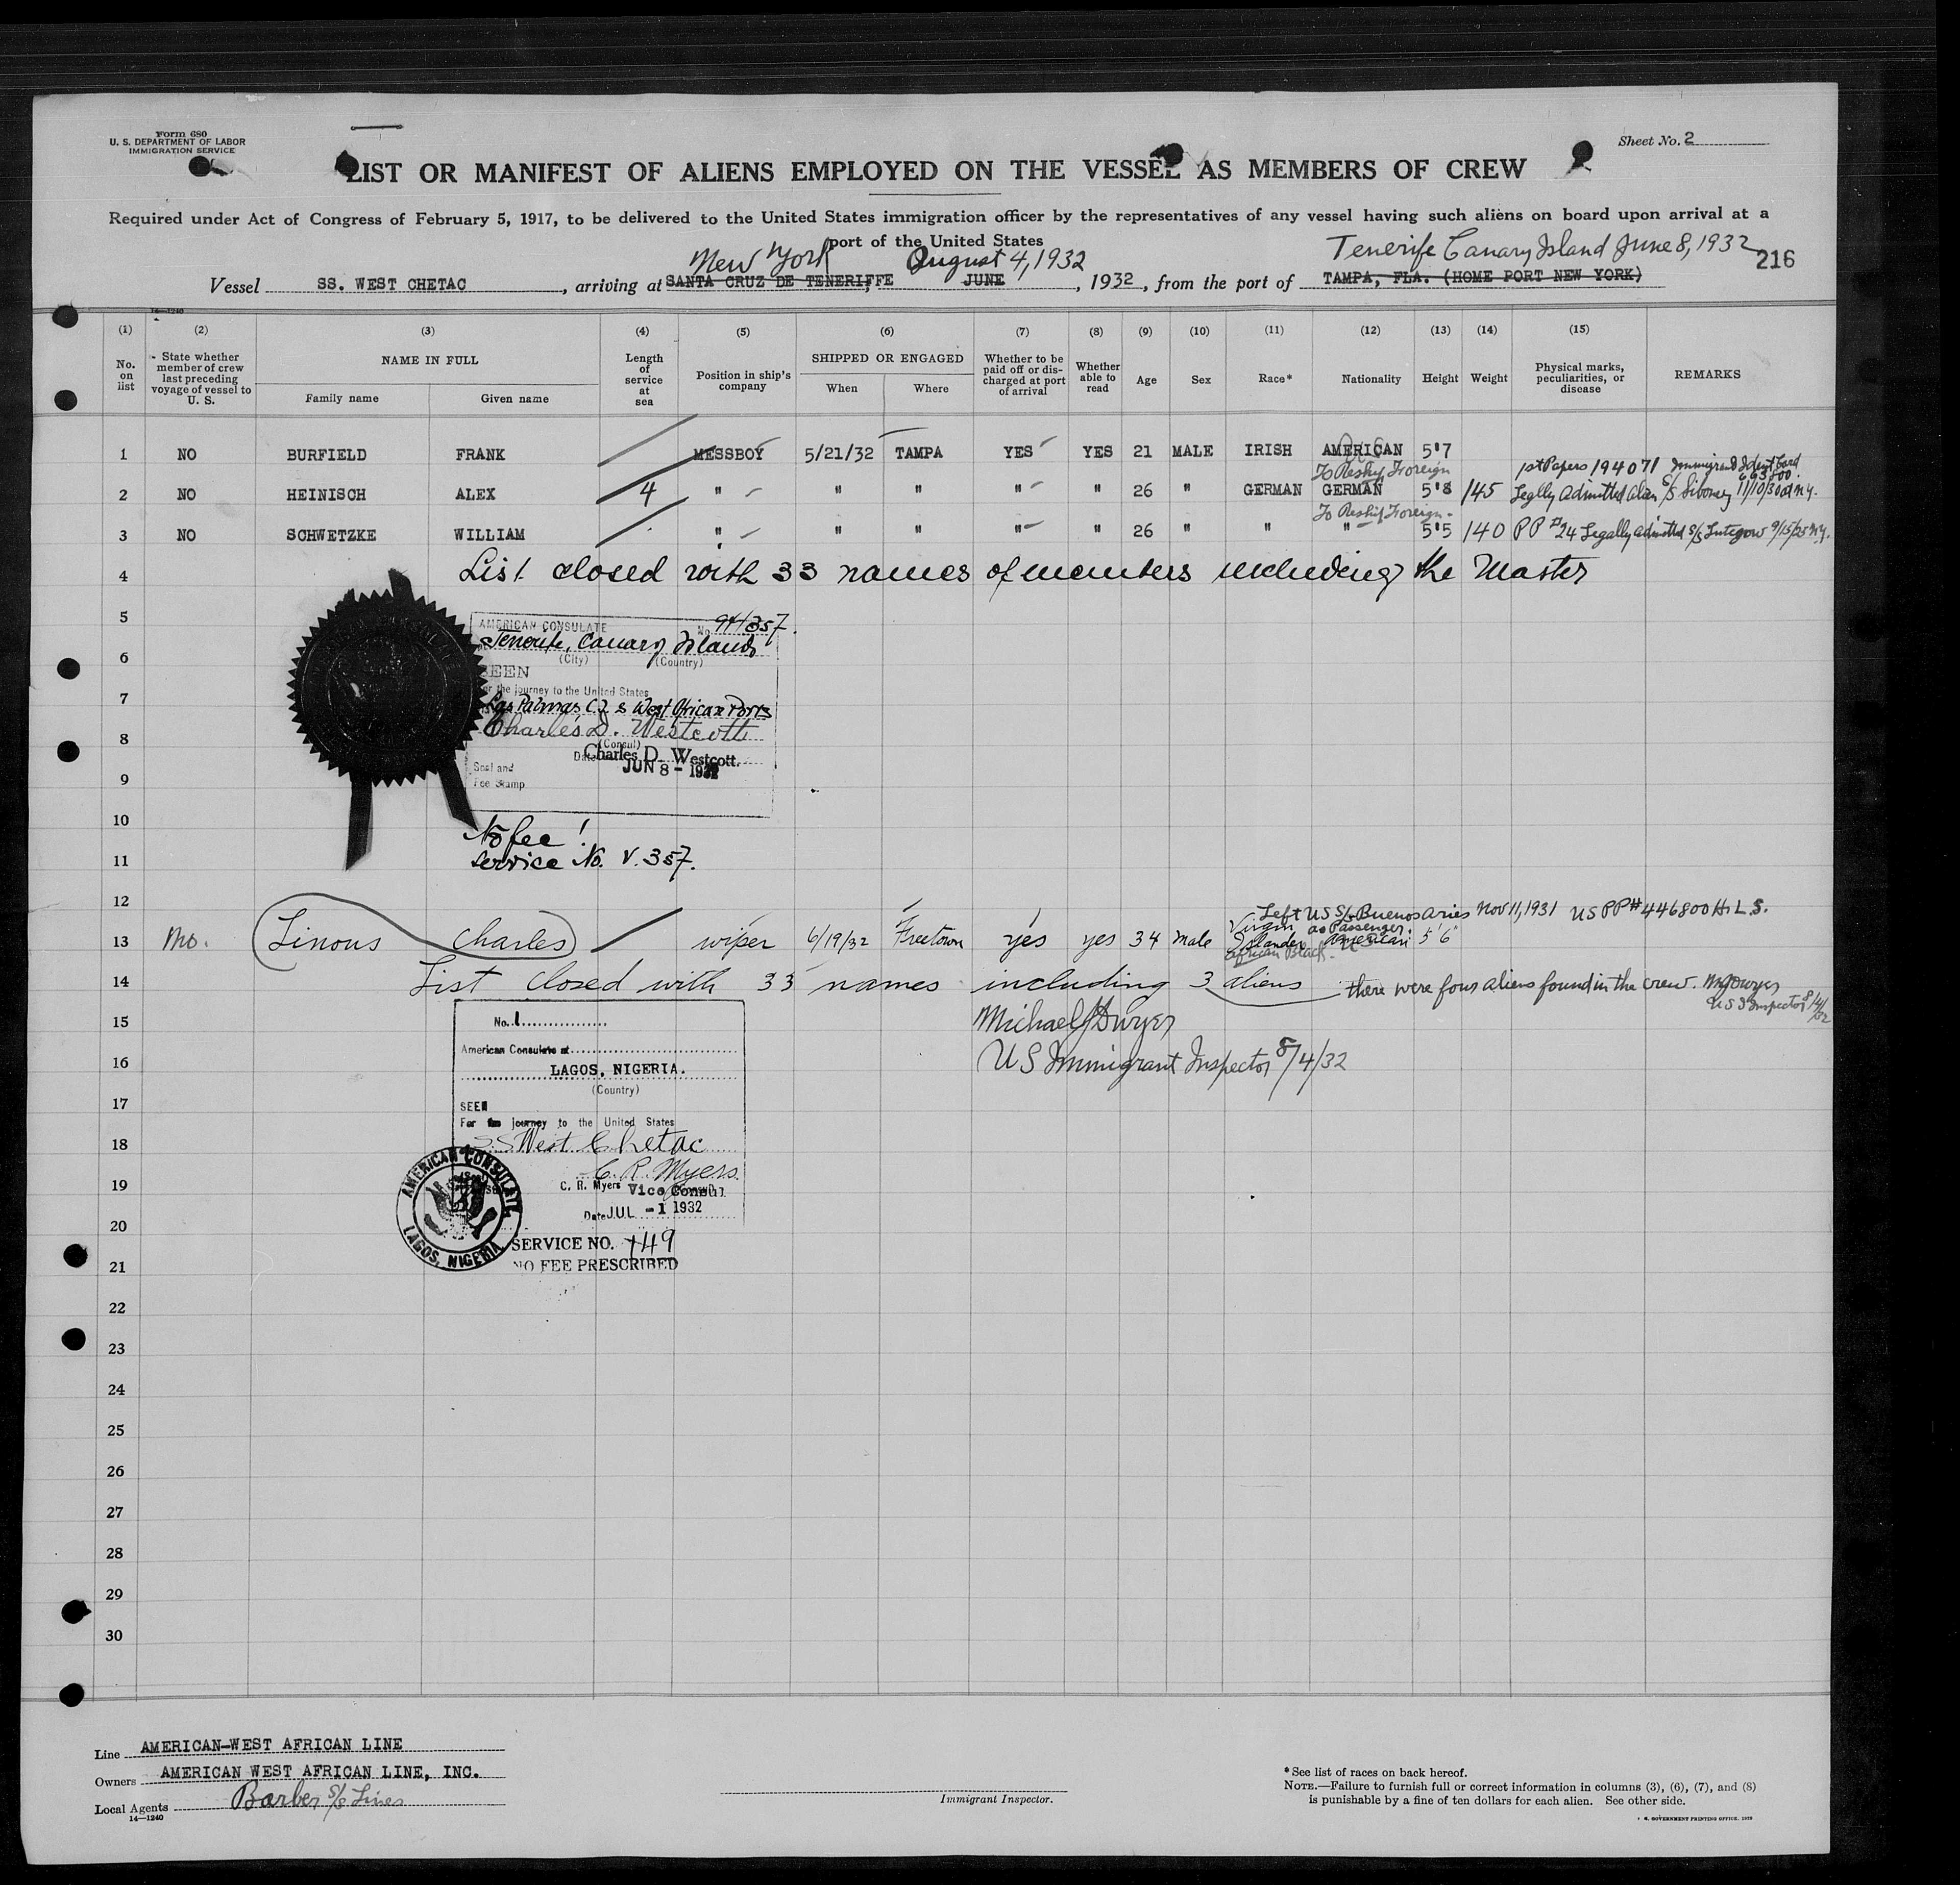 Form 680
U. S. DEPARTMENT OF LABOR
IMMIGRATION SERVICE
Sheet No. 2
LIST OR MANIFEST OF ALIENS EMPLOYED ON THE VESSEL AS MEMBERS OF CREW
Required under Act of Congress of February 5, 1917, to be delivered to the United States immigration officer by the representatives of any vessel having such aliens on board upon arrival at a
port of the United States
New York August 4, 1932 Tenerife Canary Island June 8, 1932
216
Vessel SS. WEST CHETAC, arriving at SANTA CRUZ DE TENERIFFE, JUNE, 1932, from the port of TAMPA, FLA. (HOME PORT NEW YORK)
14—1240
(1) (2) (3) (4) (5) (6) (7) (8) (9) (10) (11) (12) (13) (14) (15)
No. on list State whether member of crew last preceding voyage of vessel to U. S. NAME IN FULL Family name Given name Length of service at sea Position in ship's company SHIPPED OR ENGAGED When Where Whether to be paid off or discharged at port of arrival Whether able to read Age Sex Race* Nationality Height Weight Physical marks, peculiarities, or disease REMARKS
1 NO BURFIELD FRANK MESSBOY 5/21/32 TAMPA YES YES 21 MALE IRISH AMERICAN 5'7
To Reship Foreign 1st Papers 194071 Immigrant Ident Card
2 NO HEINISCH ALEX 4 " " " " " 26 " GERMAN GERMAN 5'8 145 Legally Admitted alien S/S Siboney 11/10/30 at N.Y.
To Reship Foreign
3 NO SCHWETZKE WILLIAM " " " " " 26 " " " 5'5 140 PP #24 Legally admitted S/S 9/15/25 N.Y.
4 List closed with 33 names of members including the Master
5
6
7
8
9
10
11
AMERICAN CONSULATE No. 357
Tenerife, Canary Islands
(City) (Country)
SEEN
For the journey to the United States
Las Palmas C.I. & West African Ports
Charles D. Westcott
(Consul)
Charles D. Westcott.
Date JUN 8 - 1932
Seal and
Fee Stamp
No fee!
Service No. V. 357.
12 Left US S/S Buenos Aries Nov 11, 1931 US PP# 446800 H. L. S.
as Passenger.
13 No. Linous Charles wiper 6/19/32 Freetown yes yes 34 male Virgin Islander African Black American 5'6"
14 List closed with 33 names including 3 aliens there were four aliens found in the crew. MJ Dwyer
US I Inspector 8/4/32
15 Michael J Dwyer
16 US Immigrant Inspector 8/4/32
17
18
19
20
21
22
23
24
25
26
27
28
29
30
No. 1
American Consulate at
LAGOS, NIGERIA.
(Country)
SEEN
For the journey to the United States
SS West Chetac
C. R. Myers
C. R. Myers Vice Consul
Date JUL - 1 1932
AMERICAN CONSULATE
LAGOS, NIGERIA
SERVICE NO. 749
NO FEE PRESCRIBED
Line AMERICAN-WEST AFRICAN LINE
Owners AMERICAN WEST AFRICAN LINE, INC.
Local Agents Barber S/S Lines
14—1240
Immigrant Inspector.
* See list of races on back hereof.
NOTE.—Failure to furnish full or correct information in columns (3), (6), (7), and (8)
is punishable by a fine of ten dollars for each alien. See other side.
U. S. GOVERNMENT PRINTING OFFICE. 1929